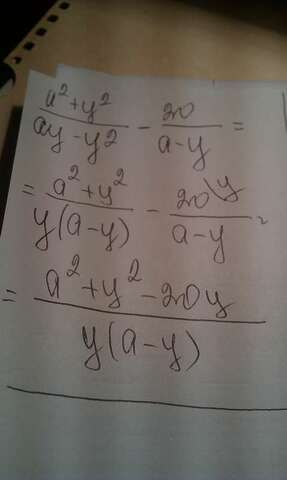 a²+y² / ay-y² - 20 / a-y =
= a²+y² / y(a-y) - 20\y / a-y =
= a²+y²-20y / y(a-y)